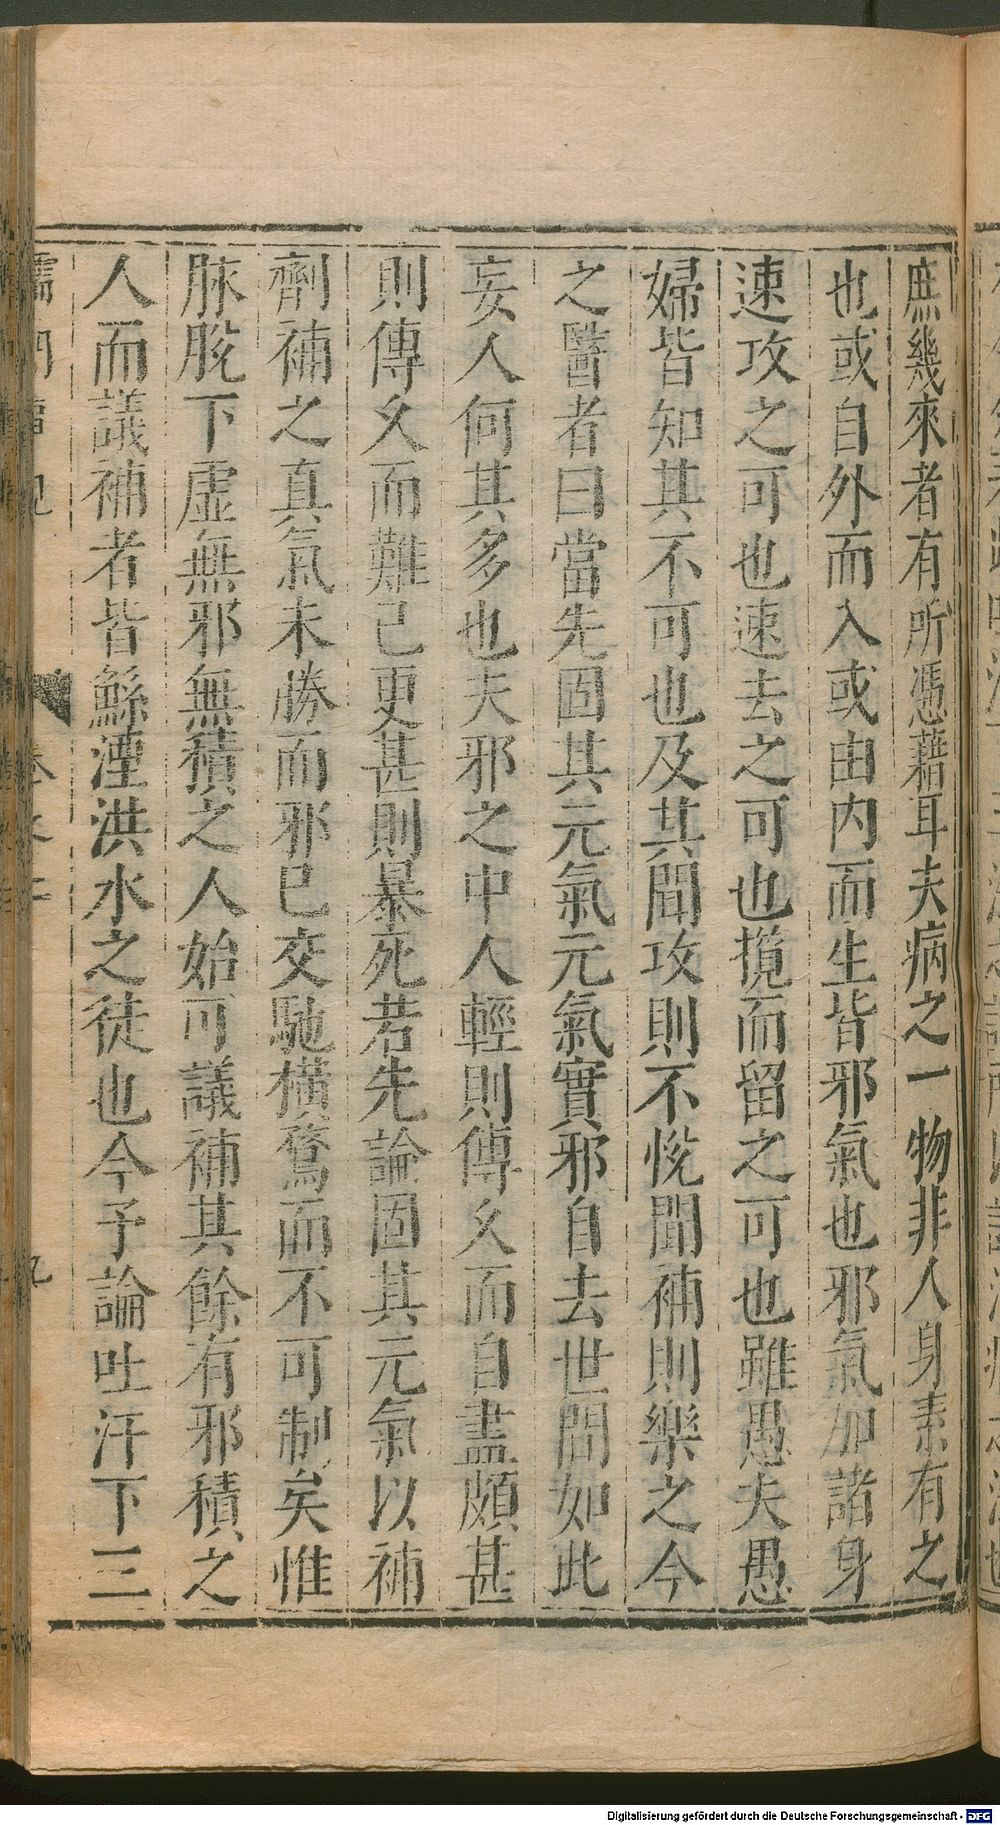 庶幾來者有所憑藉耳夫病之一物非人身素有之
也或自外而入或由内而生皆邪氣也邪氣加諸身
速攻之可也速去之可也攬而留之可也雖愚夫愚
婦皆知其不可也及其聞攻則不悅聞補則樂之今
之醫者曰當先固其元氣元氣實邪自去世間如此
妄人何其多也夫邪之中人輕則傳久而自盡頗甚
則傳久而難已更甚則暴死若先論固其元氣以補
劑補之真氣未勝而邪已交馳橫騖而不可制矣惟
脉脫下虛無邪無積之人始可議補其餘有邪積之
人而議補者皆鯀湮洪水之徒也今予論吐汗下三
Digitalisierung gefördert durch die Deutsche Forschungsgemeinschaft - DFG